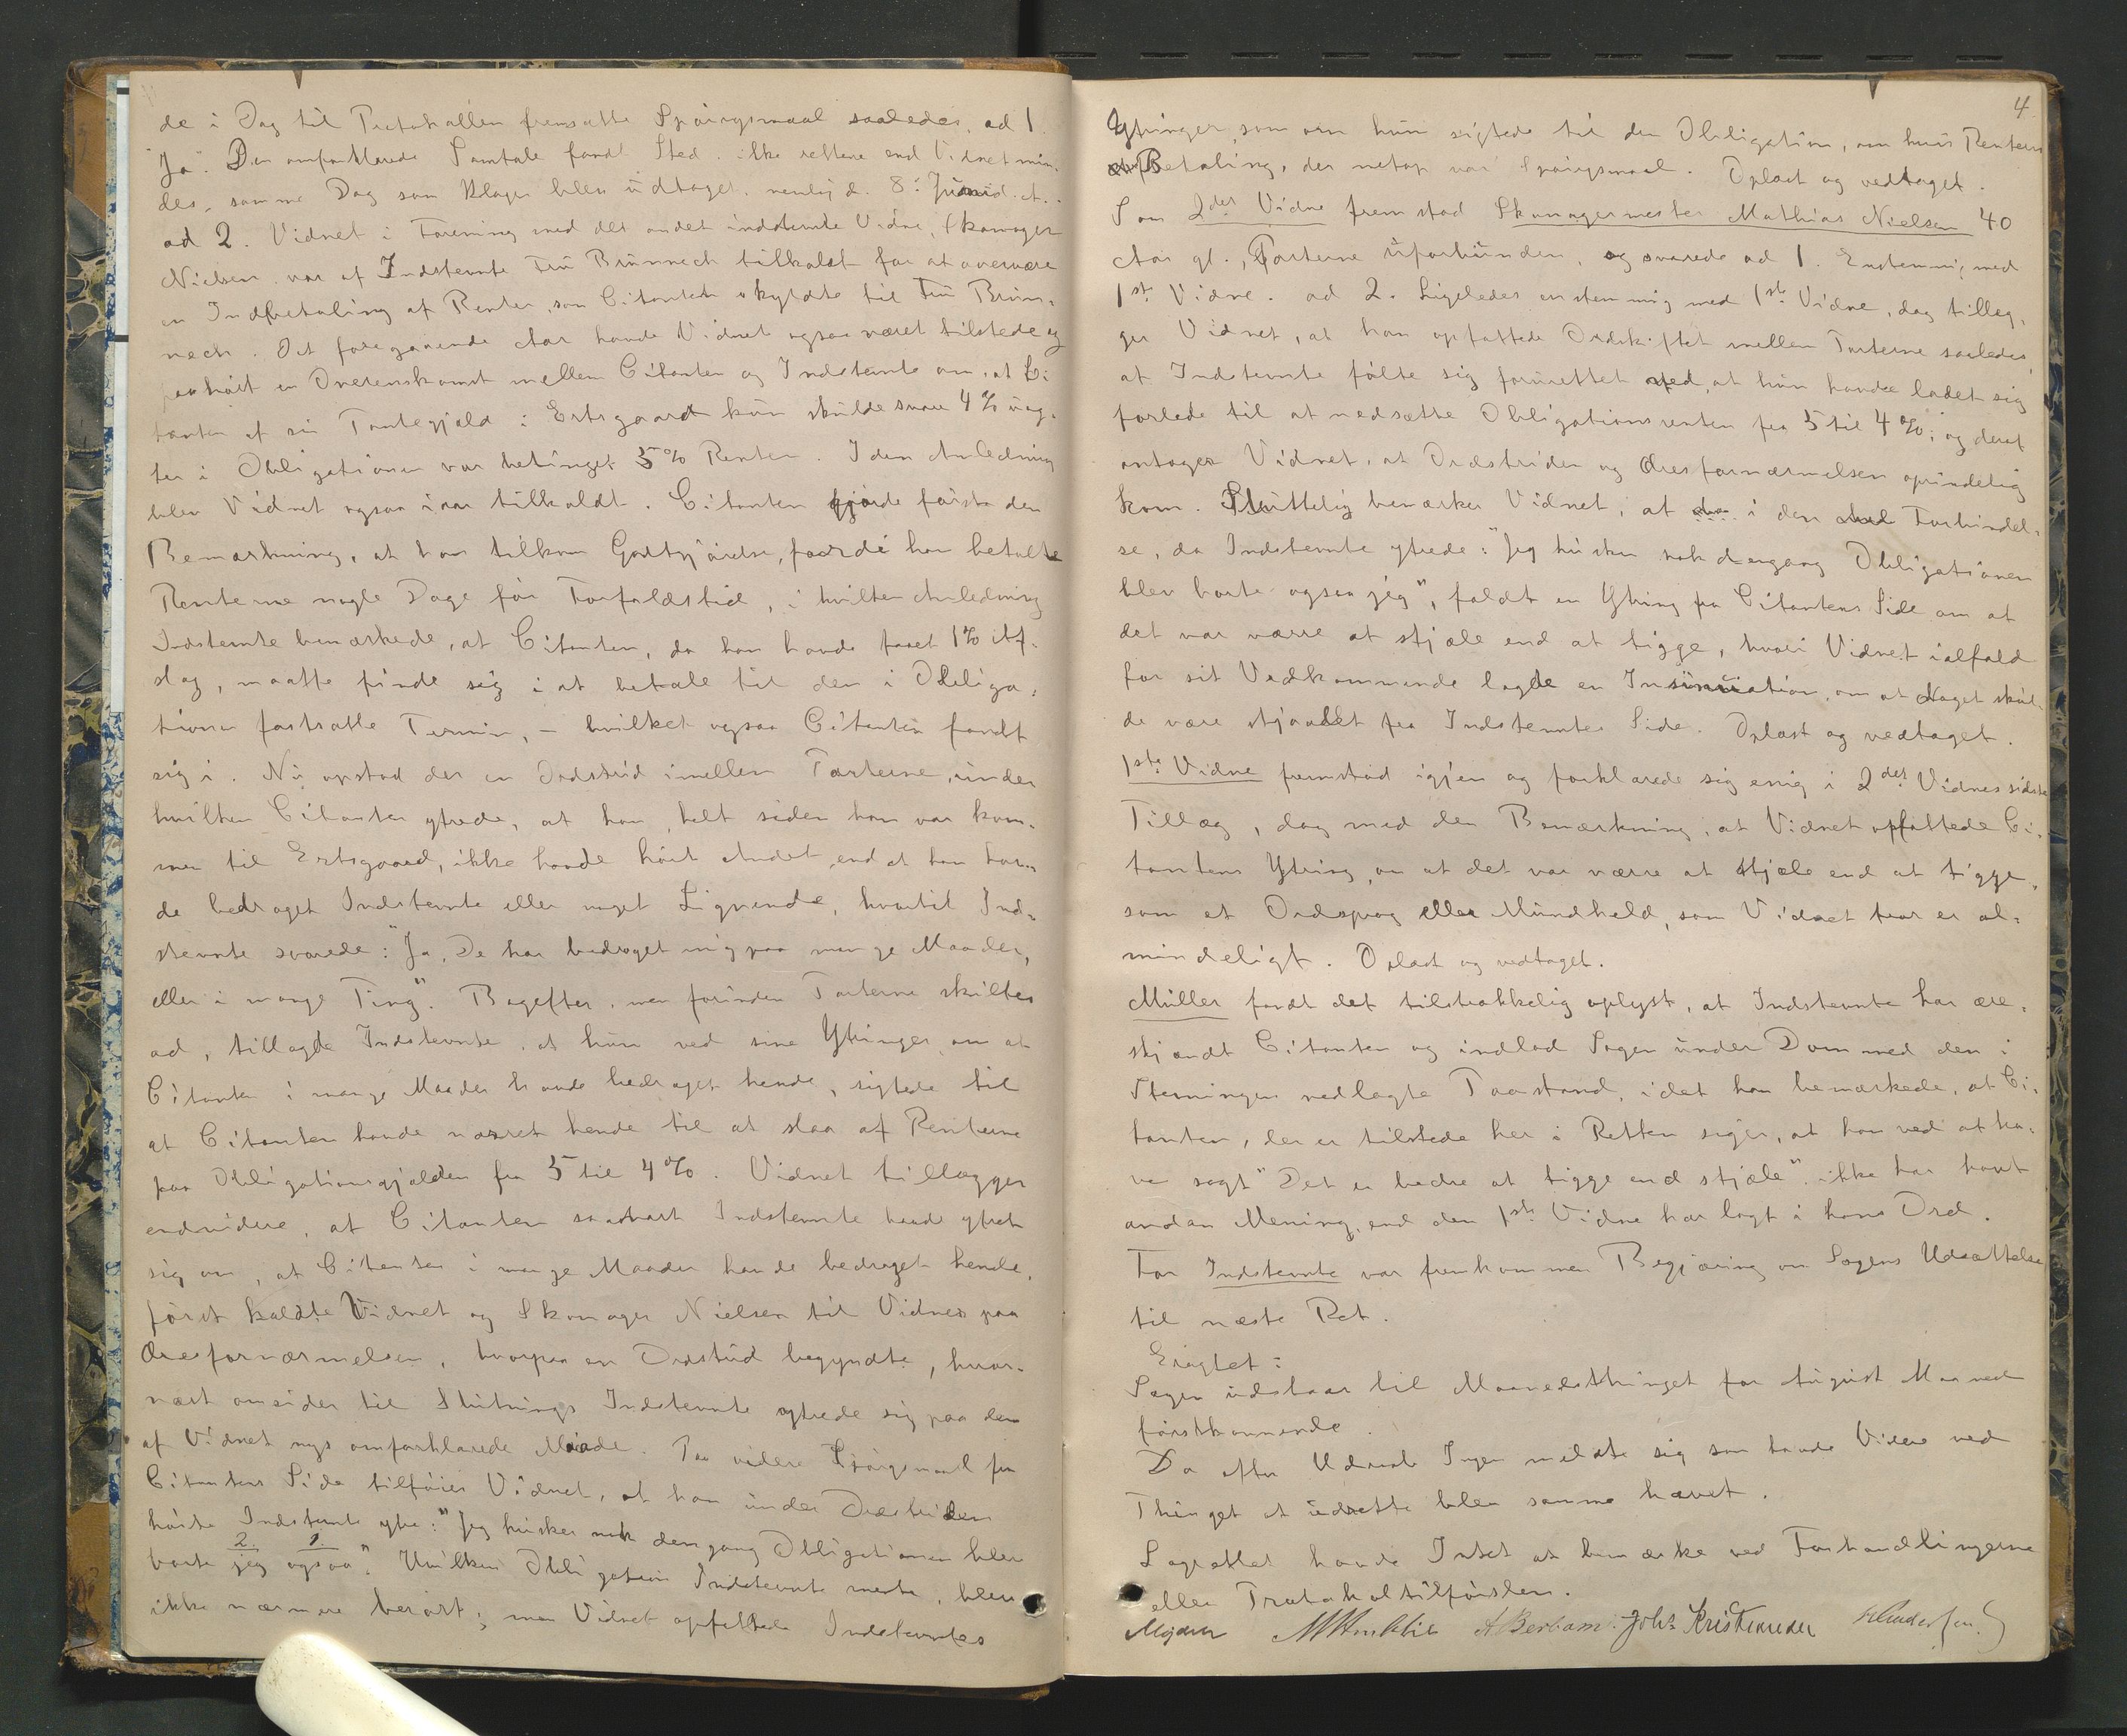 de i Dag til Protokollen fremsatte Spörgsmaal saaledes, ad 1.
"Ja". Den omforklarede Samtale fandt Sted, ikke rettere end Vidnet min-
des, samme Dag som Klagen blev udtaget, nemlig d. 8de Juni d. A.
ad 2. Vidnet i Forening med det andet indstevnte Vidne, Skomager
Nielsen var af Indstevnte Fru Brünnech tilkaldt for at overvære
en Indbetaling af Renter, som Citanten skyldte til Fru Brün-
nech. Det foregaaende Aar havde Vidnet ogsaa været tilstede og
paahört en Overenskomst mellem Citanten og Indstevnte om, at Ci-
tanten af sin Pantegjæld i Ertsgaard kun skulde svare 4 % uag-
tet i Obligationen var betinget 5 % Renter. I den Anledning
blev Vidnet ogsaa iaar tilkaldt. Citanten gjorde först den
Bemærkning, at ham tilkom Godtgjörelse, fordi han betalte
Renterne nogle Dage för Forfaldstid, i hvilken Anledning
Indstevnte bemærkede, at Citanten, da han havde faaet 1 % Af-
slag, maatte finde sig i at betale til den i Obliga-
tionen fastsatte Termin, - hvilket ogsaa Citanten fandt
sig i. Nu opstod der en Ordstrid imellem Parterne, under
hvilken Citanten ytrede, at han, helt siden han var kom-
men til Ertsgaard, ikke havde hört Andet, end at han hav-
de bedraget Indstevnte eller noget Lignende, hvortil Ind-
stevnte svarede: "Ja, De har bedraget mig paa mange Maader,
eller i mange Ting". Bagefter, men forinden Parterne skiltes
ad, tillagde Indstevnte, at hun ved sine Ytringer, om at
Citanten i mange Maader havde bedraget hende, sigtede til
at Citanten havde narret hende til at slaa af Renterne
paa Obligationsgjælden fra 5 til 4 %. Vidnet tillægger
endvidere, at Citanten saasnart Indstevnte havde ytret
sig om, at Citanten i mange Maader havde bedraget hende,
först kaldte Vidnet og Skomager Nielsen til Vidner paa
Æresfornærmelsen, hvorpaa en Ordstrid begyndte, hvor-
næst omsider til Slutning Indstevnte ytrede sig paa den
af Vidnet nys omforklarede Maade. Paa videre Spörgsmaal fra
Citantens Side tilföier Vidnet, at han under Ordstriden
hörte Indstevnte ytre: "Jeg husker nok dengang Obligationen blev
2. 1.
borte jeg ogsaa". Hvilken Obligation Indstevnte mente, blev
ikke nærmere berört; men Vidnet opfattede Indstevntes
4
Ytringer, som om hun sigtede til den Obligation, om hvis Renters
Betaling, der netop var Spörgsmaal. Oplæst og vedtaget.
Som 2det Vidne fremstod Skomagermester Mathias Nielsen 40
Aar gl., Parterne uforbunden, og svarede ad 1. Enstemmig med
1ste Vidne. ad 2. Ligeledes enstemmig med 1ste Vidne, dog tillæg-
ger Vidnet, at han opfattede Ordskiftet mellem Parterne saaledes,
at Indstevnte fölte sig forurettet ved, at hun havde ladet sig
forlede til at nedsætte Obligationsrenten fra 5 til 4 %; og deraf
antager Vidnet, at Ordstriden og Æresfornærmelsen oprindelig
kom. Sluttelig bemærker Vidnet, at i den Forbindel-
se, da Indstevnte ytrede: "Jeg husker nok dengang Obligationen
blev borte ogsaa jeg", faldt en Ytring fra Citantens Side om at
det var værre at stjæle end at tigge, hvori Vidnet ialfald
for sit Vedkommende lagde en Insinuation, om at Noget skul-
de være stjaalet fra Indstevntes Side. Oplæst og vedtaget.
1ste Vidne fremstod igjen og forklarede sig enig i 2det Vidnes sidste
Tillæg, dog med den Bemærkning, at Vidnet opfattede Ci-
tantens Ytring, om at det var værre at stjæle end at tigge,
som et Ordsprog eller Mundheld, som Vidnet tror er al-
mindeligt. Oplæst og vedtaget.
Müller fandt det tilstrækkelig oplyst, at Indstevnte har ære-
skjændt Citanten og indlod Sagen under Dom med den i
Stevningen nedlagte Paastand, idet han bemærkede, at Ci-
tanten, der er tilstede her i Retten siger, at han ved at ha-
ve sagt "Det er bedre at tigge end stjæle" ikke har havt
anden Mening, end den 1ste Vidne har lagt i hans Ord.
For Indstevnte var fremkommen Begjæring om Sagens Udsættelse
til næste Ret.
Eragtet:
Sagen udstaar til Maanedsthinget for August Maaned
förstkommende.
Da efter Udraab Ingen meldte sig som havde Videre ved
Thinget at udrette blev samme hævet.
Lagrettet havde Intet at bemærke ved Forhandlingerne
eller Protokoltilförslen.
A Berbom. Johs Kristensen